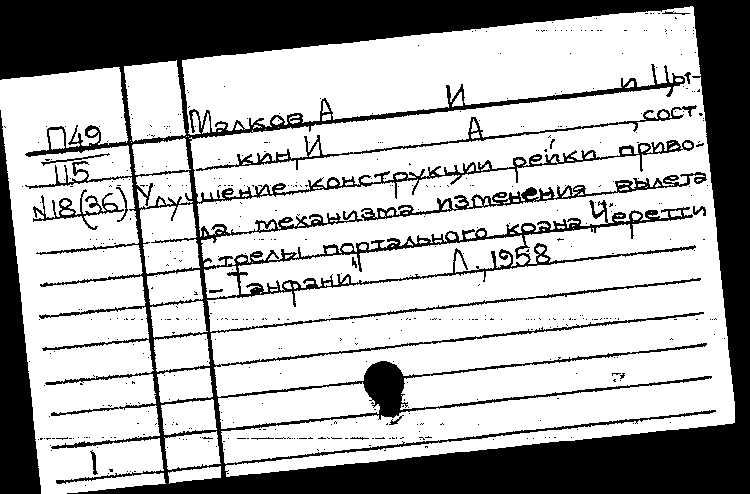 П49
115
№18(36)
Малков, А И и Цы-
кин, И А , сост.
Улучшение конструкции рейки приво-
да механизма изменения вылета
стрелы портального крана „Черетти
– Танфани". Л., 1958
1.